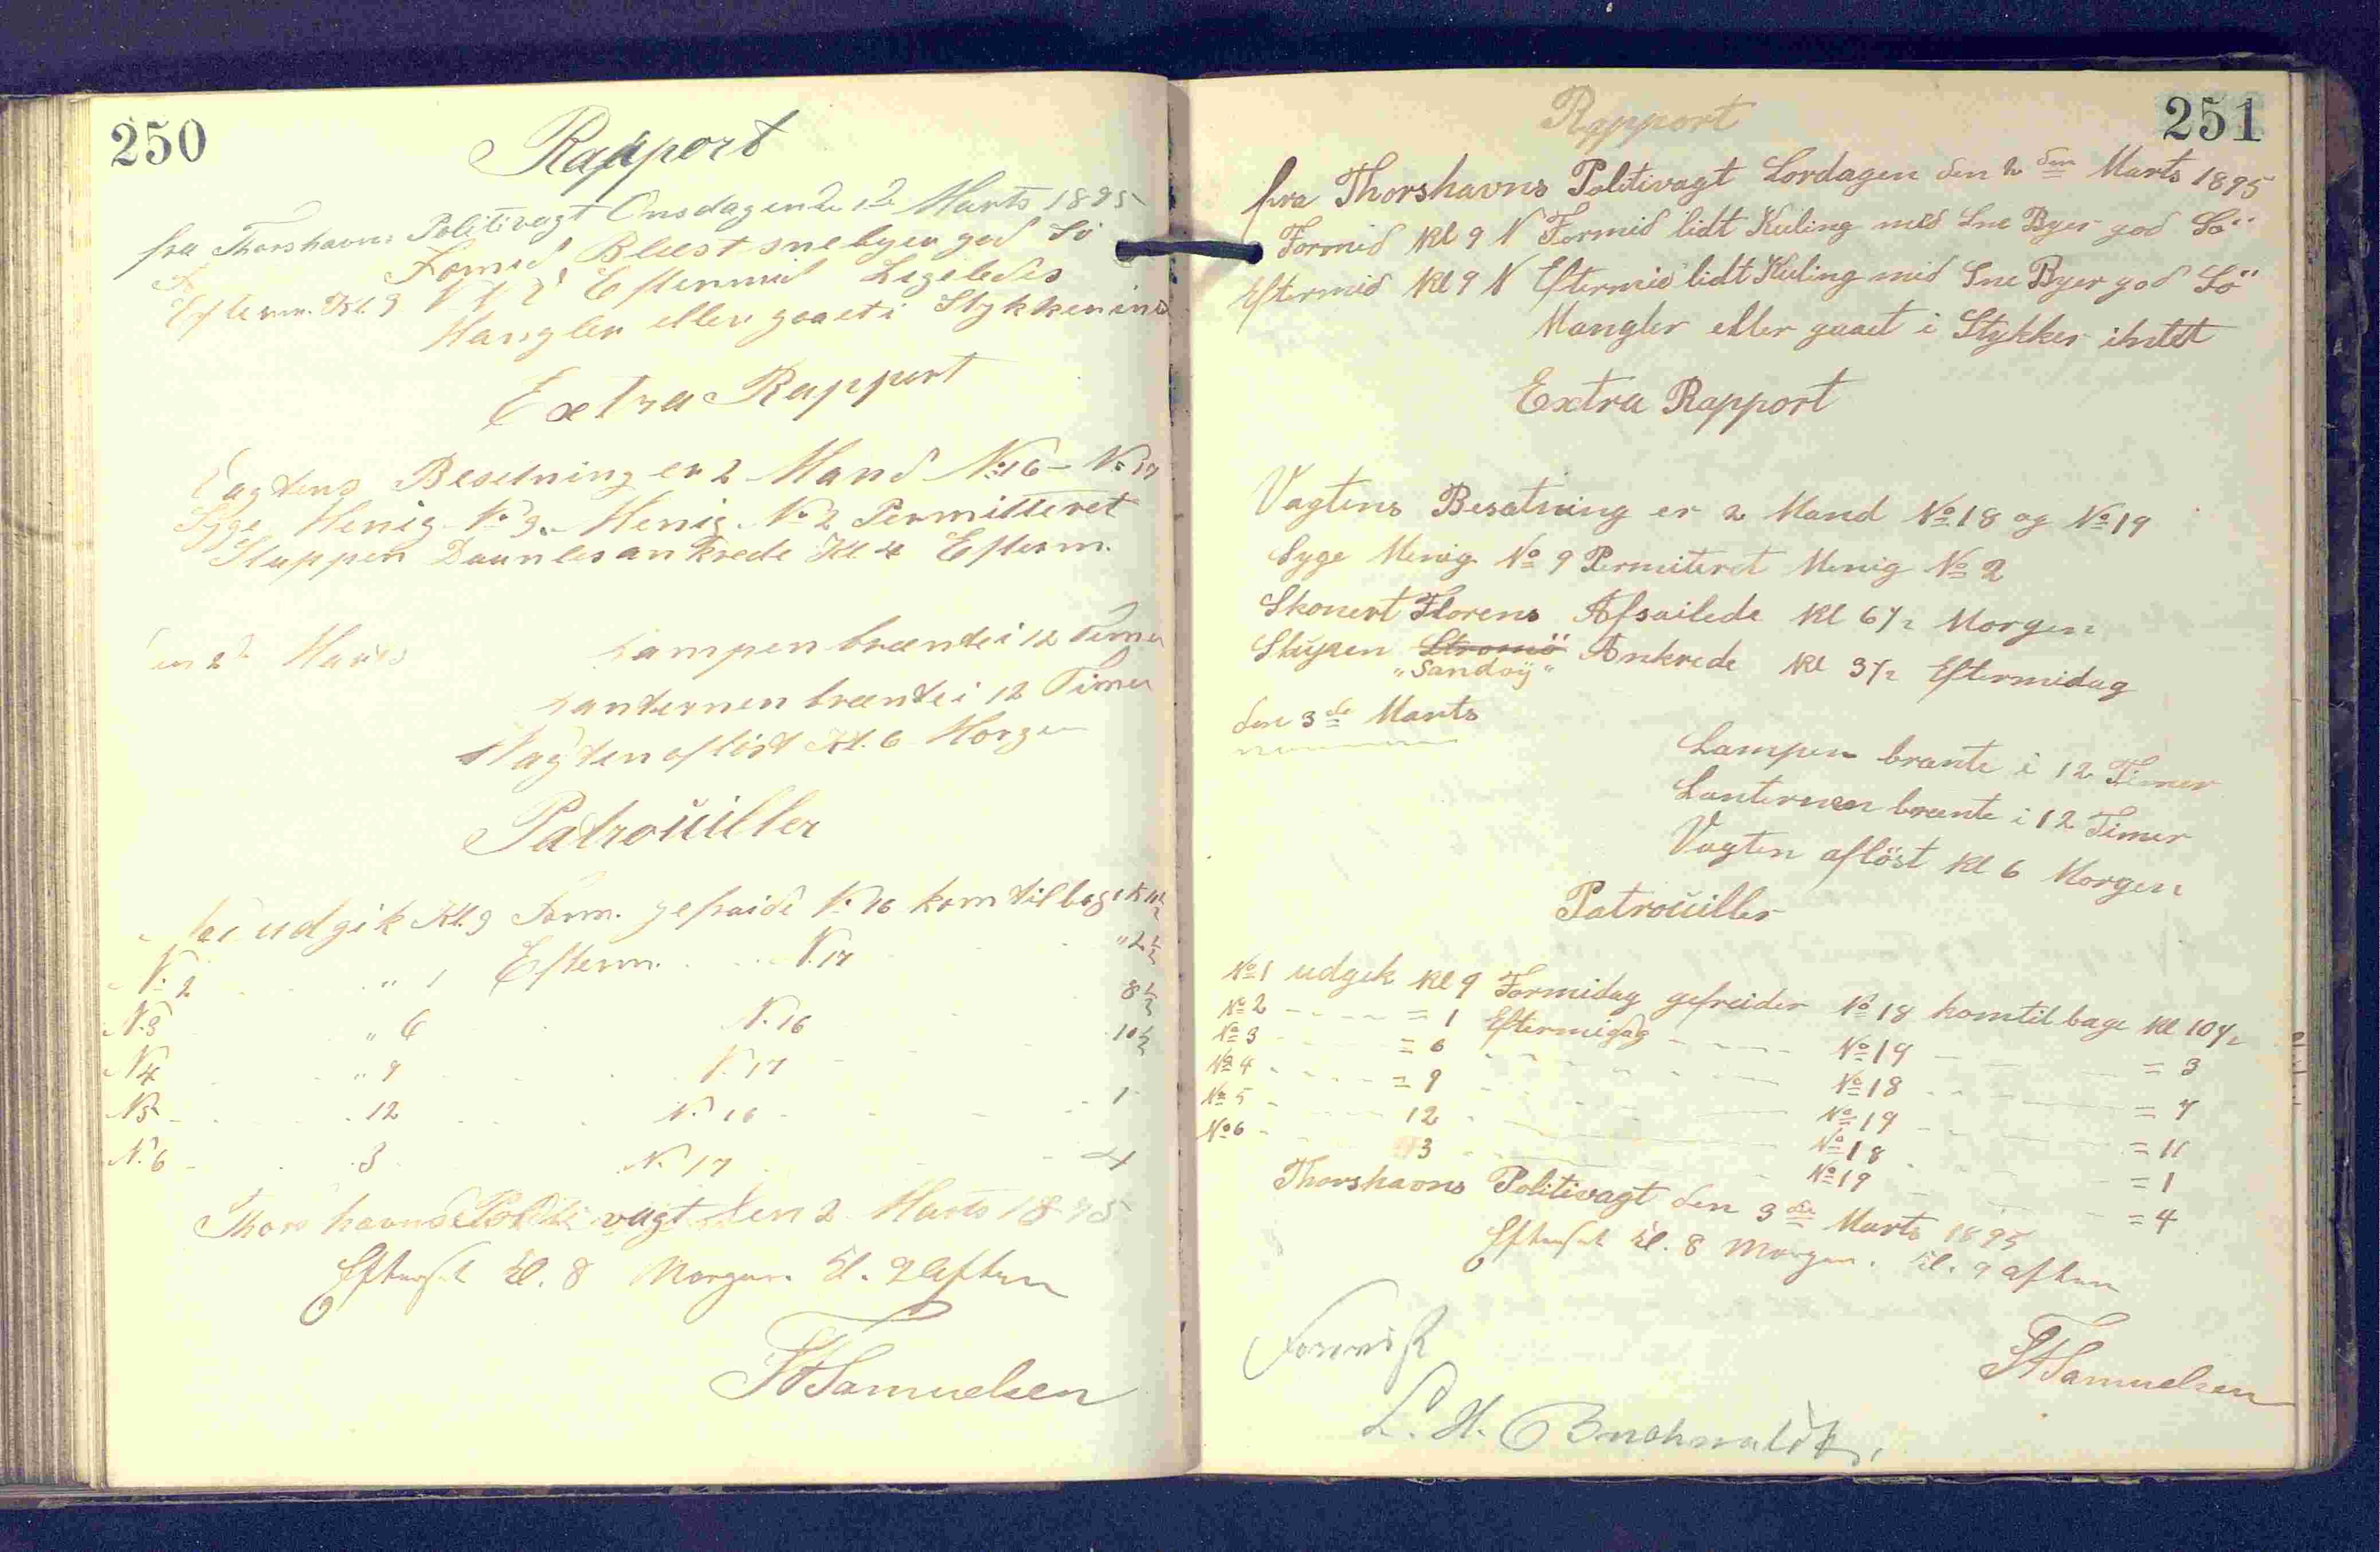 250
Rapport
fra Thorshavns Politivagt Onsdagen d. 1de Marts 1895
Formid Blæst snebyer god Sö
Efterm. Kl. 9 Eftermid Ligeledes
Mangler eller gaaet i Stykker
Extra Rapport
Vagtens Besetning er 2 Mand No 16 - No 17
Syge Menig No 9. Menig No 2 Permitteret
Sluppen ankrede Kl 4 Efterm.
den 2d Marts
Lampen brænte i 12 Timer
Lanternen brænte i 12 Timer
Vagten aflöst Kl. 6 Morgen
Patroüiller
udgik Kl. 9 Form. gefraide No 16 kom tilbage
No 2 " 1 Efterm. No 17 " 2½
No 3 " 6 No 16 8½
No 4 " 9 No 17 10½
No 5 12 No 16 1
No 6 3 No 17 4
Thorshavns Politivagt den 2 Marts 1895
Efterset Kl. 8 Morgen. Kl. 9 Aften
Samuelsen
251
Rapport
fra Thorshavns Politivagt Lordagen den 2den Marts 1895
Formid Kl 9 N Formid lidt Kuling med Sne Byer god Sö
Eftermid Kl 9 N Eftermid lidt Kuling mid Sne Byer god Sö
Mangler eller gaaet i Stykker intet
Extra Rapport
Vagtens Besatning er 2 Mand No 18 og No 19
Syge Menig No 9 Permiteret Menig No 2
Skonert Florens Afsailede Kl 6½ Morgen
Slupen Stromö Ankrede Kl 3½ Eftermidag
"Sandoÿ"
den 3de Marts
Lampen brante i 12 Timer
Lanternen brænte i 12 Timer
Vagten aflöst Kl 6 Morgen
Patroüiller
No 1 udgik Kl 9 Formidag gefreider No 18 komtilbage Kl 10½
No 2 = 1 Eftermidag No 19 = 3
No 3 = 6 No 18 = 7
No 4 = 9 No 19 = 11
No 5 12 No 18 = 1
No 6 3 No 19 = 4
Thorshavns Politivagt den 3de Marts 1895
Efterset Kl. 8 Morgen. Kl. 9 aften
Samuelsen
L. H. Buchwaldt.